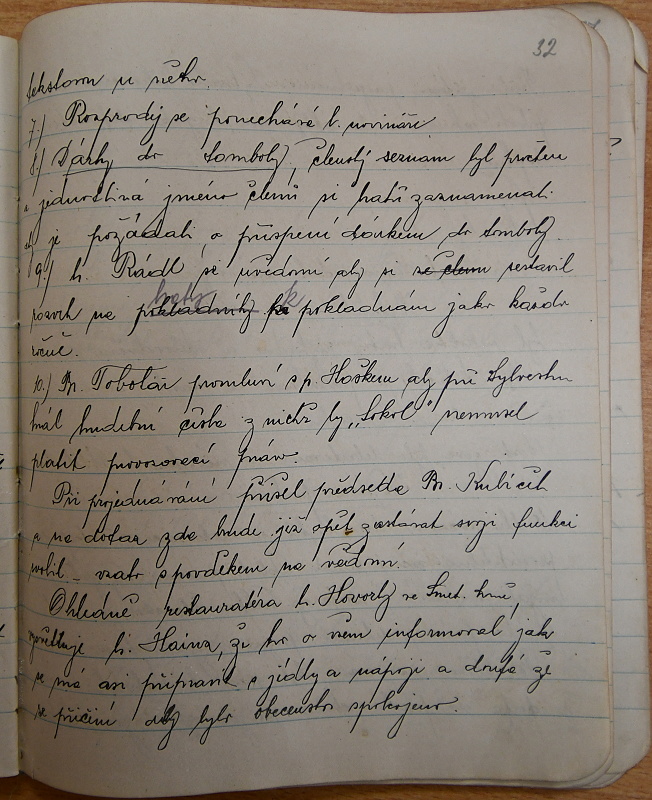 32
7.) Rozprodej se ponechává b. novináři.
8.) Dárky do tomboly, členský seznam byl pročten
jednotlivá jména členů si bratři zaznamenali
je požádali o přispění dárkem do tomboly
9.) b. Rádl se uvědomí aby si se členu sestavil
rozvrh na pokladníky hoty ku k pokladnám jako každo
ročně.
10.) Br. Tobolář promluví s p. Haškem aby při Sylvestru
hrál hudební čísla z nichž by „Sokol" nemusel
platit provozovací práva.
Při projednávání přišel předseda Br. Kubíček
a na dotaz zda bude již opět zastávat svoji funkci
svolil – vzato s povděkem na vědomí.
Ohledně restauratéra b. Hovorky ve Smet. síně,
b. Hainz, že ho o všem informoval jak
se má asi připravit s jídly a nápoji a doufá že
se přičiní aby bylo obecenstvo spokojeno.